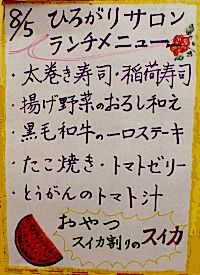 8/5 ひろがりサロン
ランチメニュー
・太巻き寿司・稲荷寿司
・揚げ野菜のおろし和え
・黒毛和牛の一口ステーキ
・たこ焼き・トマトゼリー
・とうがんのトマト汁
おやつ
スイカ割りのスイカ